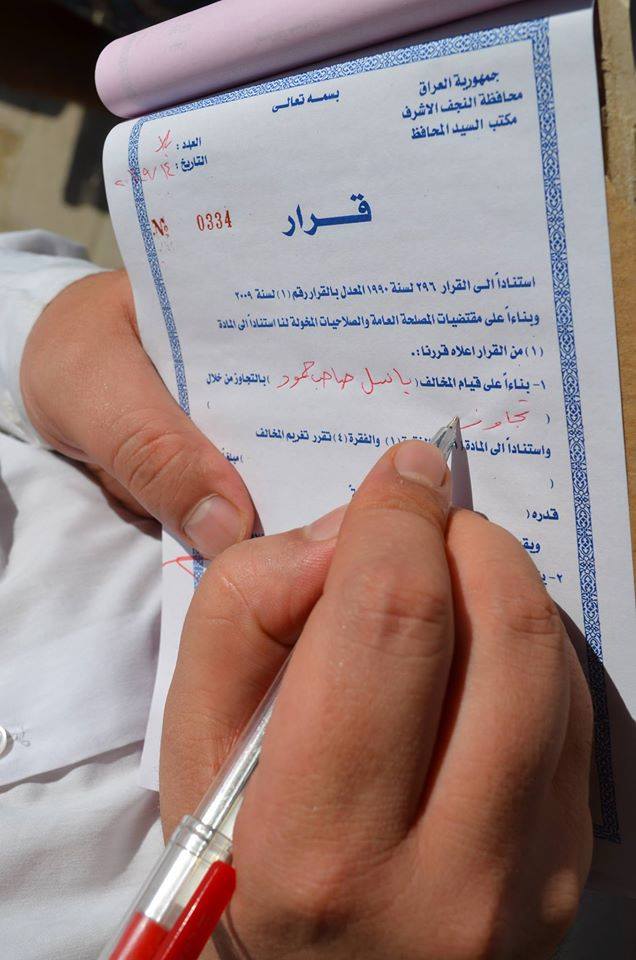 جمهورية العراق
محافظة النجف الاشرف
مكتب السيد المحافظ
بسمه تعالى
العدد :
التاريخ :
قـــرار
№ 0334
استناداً الـى القرار ٢٩٦ لسنة ١٩٩٠ المعدل بالقرار رقم (١) لسنة ٢٠٠٩
وبناءاً على مقتضيات المصلحة العامة والصلاحيات المخولة لنا استناداً الى المادة
(١) من القرار اعلاه قررنا :.
١- بناءاً على قيام المخالف ( باسل صاحب حمود ) بالتجاوز من خلال
( تجاوز )
واستناداً الى المادة (١) والفقرة (٤) تقرر تغريم المخالف
( ) مبلغاً
قدره (
٢-